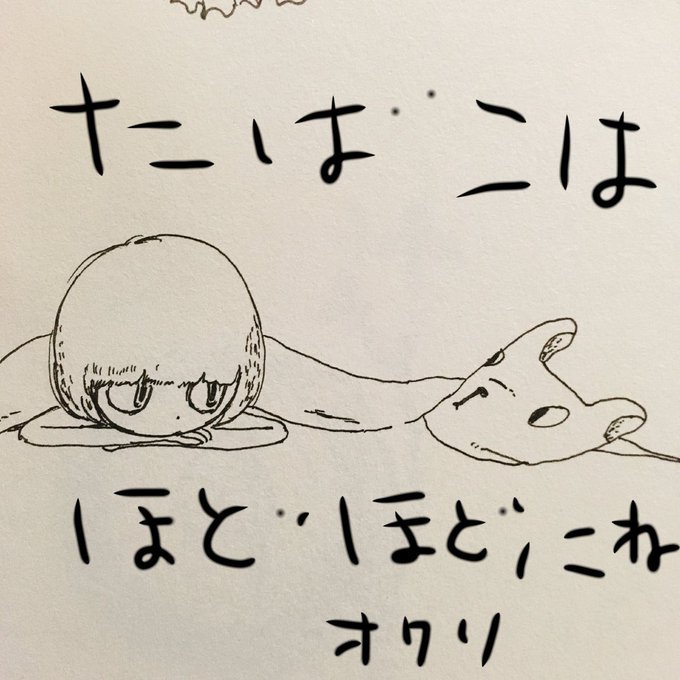 たばこは
ほどほどにね
オワリ